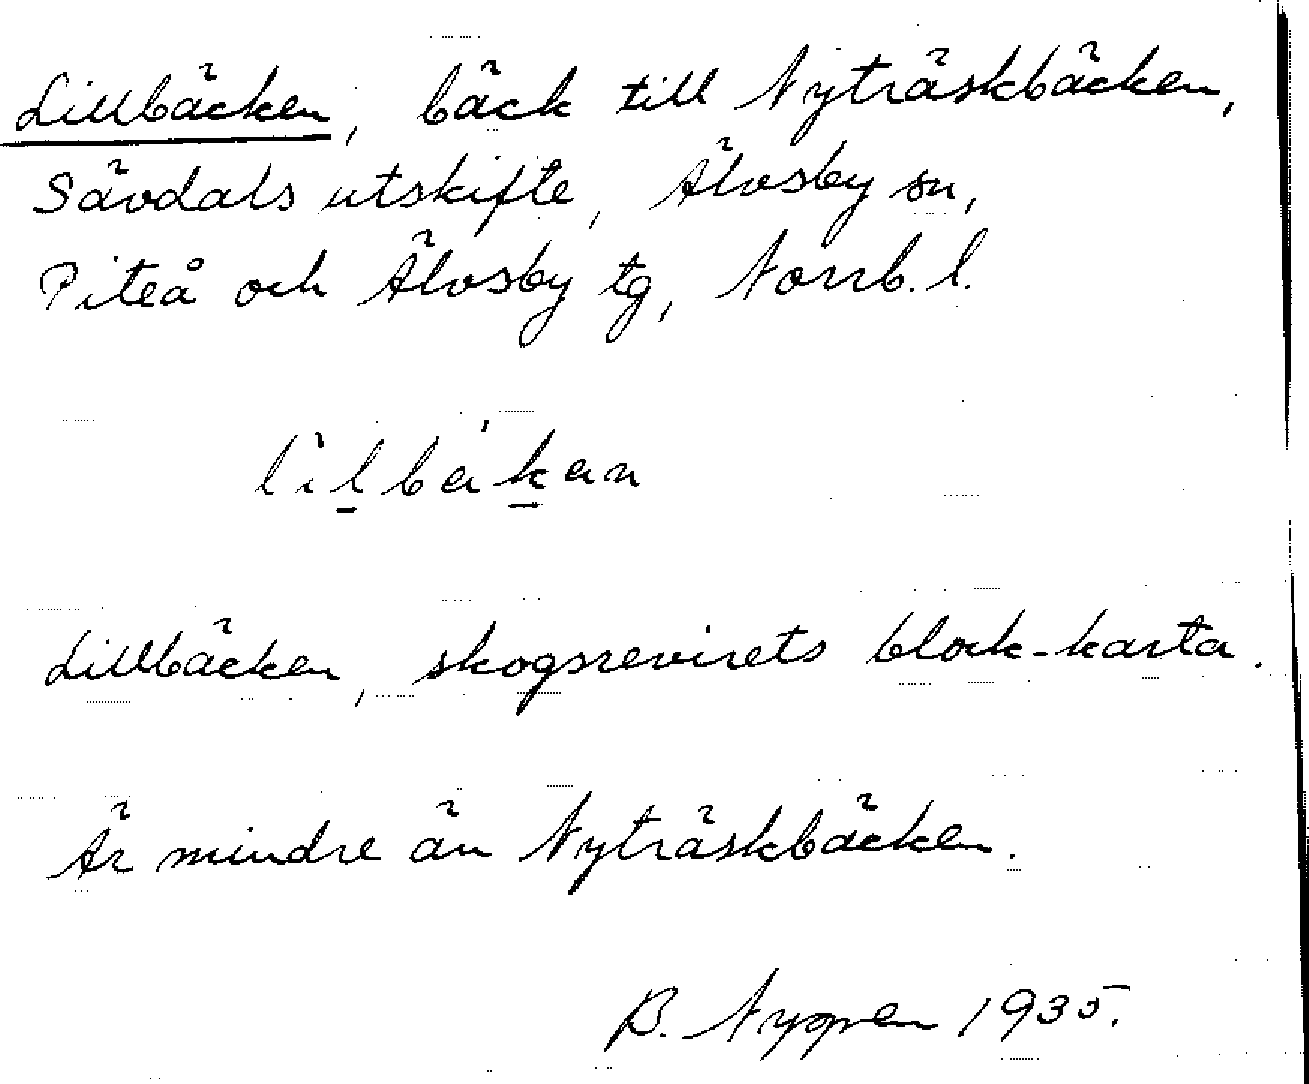 Lillbäcken, bäck till Nyträskbäcken,
Sävdals utskifte, Älvsby sn,
Piteå och Älvsby tg, Norrb. l.
Lillbäcken, skogsrevirets block-karta.
Är mindre än Nyträskbäcken.
B. Nygren 1935.